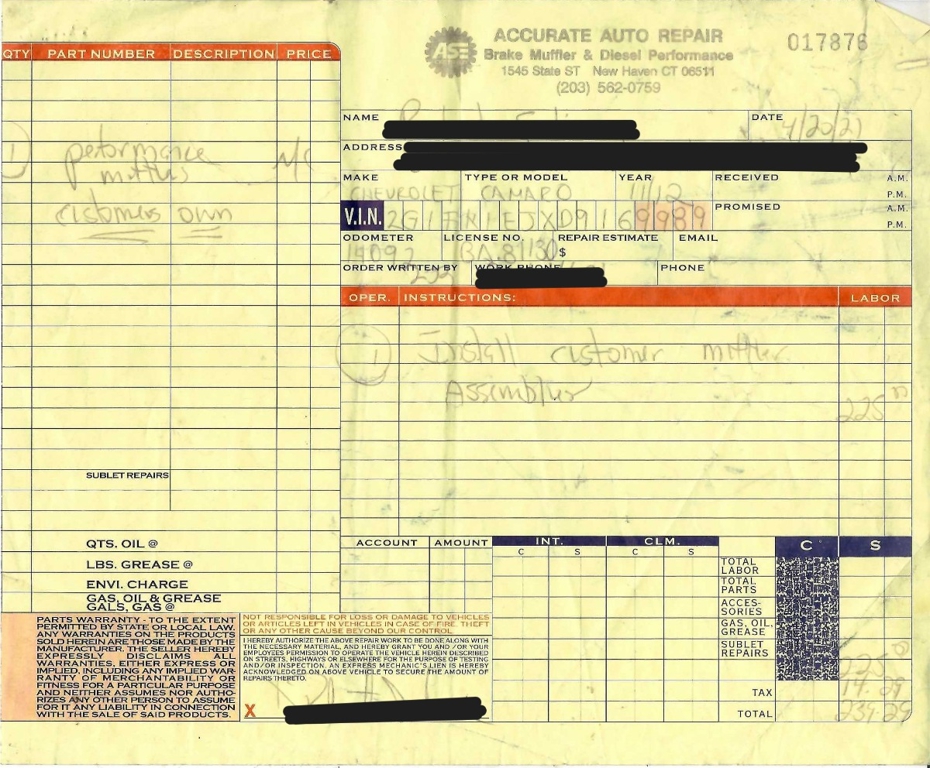 ACCURATE AUTO REPAIR
Brake Muffler & Diesel Performance
1545 State ST New Haven CT 06511
(203) 562-0759
017876
QTY PART NUMBER DESCRIPTION PRICE
performance
customers own
SUBLET REPAIRS
QTS. OIL @
LBS. GREASE @
ENVI. CHARGE
GAS, OIL & GREASE
GALS, GAS @
NAME DATE 4/20/21
ADDRESS
MAKE TYPE OR MODEL YEAR RECEIVED A.M.
P.M.
CHEVROLET CAMARO
V.I.N. PROMISED A.M.
P.M.
ODOMETER LICENSE NO. REPAIR ESTIMATE EMAIL
$
ORDER WRITTEN BY WORK PHONE PHONE
OPER. INSTRUCTIONS: LABOR
1 Install customer muffler
225
ACCOUNT AMOUNT INT. CLM. C S
C S C S
TOTAL LABOR
TOTAL PARTS
ACCES-
SORIES
GAS, OIL,
GREASE
SUBLET
REPAIRS
TAX
TOTAL 239.29
PARTS WARRANTY - TO THE EXTENT
PERMITTED BY STATE OR LOCAL LAW.
ANY WARRANTIES ON THE PRODUCTS
SOLD HEREIN ARE THOSE MADE BY THE
MANUFACTURER. THE SELLER HEREBY
EXPRESSLY DISCLAIMS ALL
WARRANTIES, EITHER EXPRESS OR
IMPLIED, INCLUDING ANY IMPLIED WAR-
RANTY OF MERCHANTABILITY OR
FITNESS FOR A PARTICULAR PURPOSE
AND NEITHER ASSUMES NOR AUTHO-
RIZES ANY OTHER PERSON TO ASSUME
FOR IT ANY LIABILITY IN CONNECTION
WITH THE SALE OF SAID PRODUCTS.
NOT RESPONSIBLE FOR LOSS OR DAMAGE TO VEHICLES
OR ARTICLES LEFT IN VEHICLES IN CASE OF FIRE. THEFT
OR ANY OTHER CAUSE BEYOND OUR CONTROL.
I HEREBY AUTHORIZE THE ABOVE REPAIR WORK TO BE DONE ALONG WITH
THE NECESSARY MATERIAL, AND HEREBY GRANT YOU AND / OR YOUR
EMPLOYEES PERMISSION TO OPERATE THE VEHICLE HEREIN DESCRIBED
ON STREETS, HIGHWAYS OR ELSEWHERE FOR THE PURPOSE OF TESTING
AND/OR INSPECTION. AN EXPRESS MECHANIC'S LIEN IS HEREBY
ACKNOWLEDGED ON ABOVE VEHICLE TO SECURE THE AMOUNT OF
REPAIRS THERETO.
X